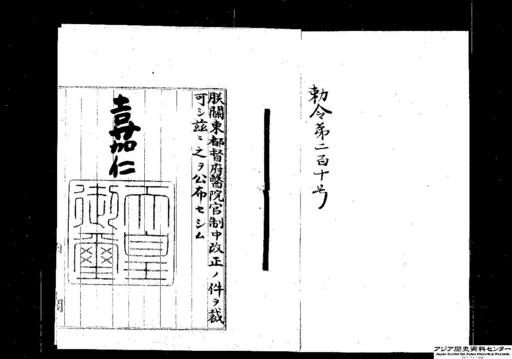 勅令第二百十号
朕關東都督府醫院官制中改正ノ件ヲ裁
可シ茲ニ之ヲ公布セシム
嘉仁
天皇
御璽
月
アジア歴史資料センター
Japan Center for Asian Historical Records